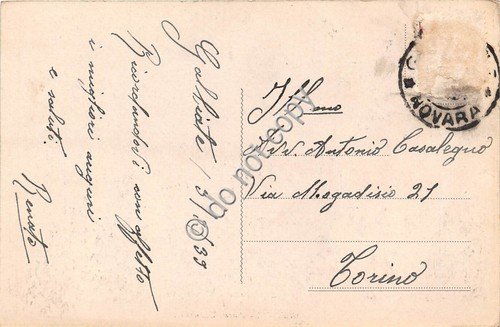 Galbiate 13/1°/39
Ricordandovi con affetto
i migliori auguri
e saluti.
Renato
Ill.mo
Avv. Antonio Casalegno
Via Mogadisio 21
Torino
NOVARA
do not copy